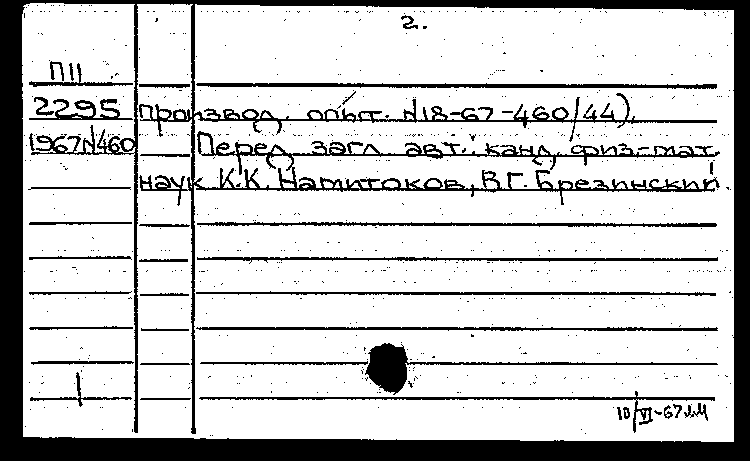 2.
П11
2295 производ. опыт. №18-67-460/44).
1967№460 Перед загл авт.: канд. физ.-мат.
наук К.К. Намитоков, В.Г. Брезинский.
10/VI-67